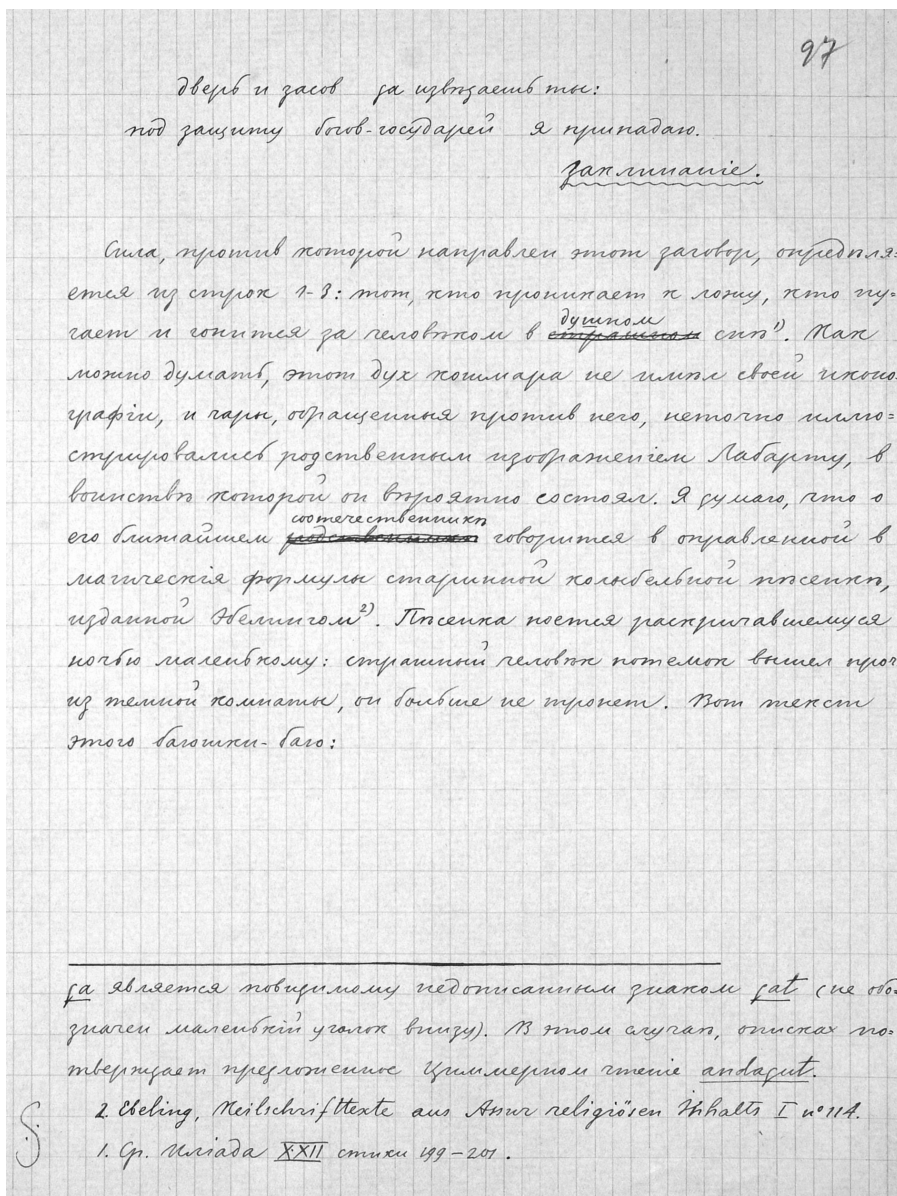 97
дверь и засов да изѣдаешь ты:
под защиту богов-государей я припадаю.
заклинанiе.
Сила, против которой направлен этот заговор, опредѣля=
ется из строк 1-3: тот, кто проникает к ложу, кто пу=
гает и гонится за человѣком в страшном душном снѣ 1). Как
можно думать, этот дух кошмара не имѣл своей иконо=
графiи, и чары, обращенныя против него, неточно иллю=
стрировались родственным изображенiем Лабарту, в
воинствѣ которой он вѣроятно состоял. Я думаю, что о
его ближайшем соотечественникѣ говорится в оправленной в
магическiя формулы старинной колыбельной пѣсенкѣ,
изданной Эбелингом 2). Пѣсенка поется раскричавшемуся
ночью маленькому: страшный человѣк потемок вышел проч
из темной комнаты, он больше не тронет. Вот текст
этого баюшки-баю:
ga является повидимому недописанным знаком gat (не обо=
значен маленькiй уголок внизу). В этом случаѣ, описка по=
тверждает предложенное Циммерном чтенiе andagut.
2. Ebeling, Keilschrifttexte aus Assur religiösen Inhalts I nº 114.
1. Ср. Илiада XXII стихи 199-201.